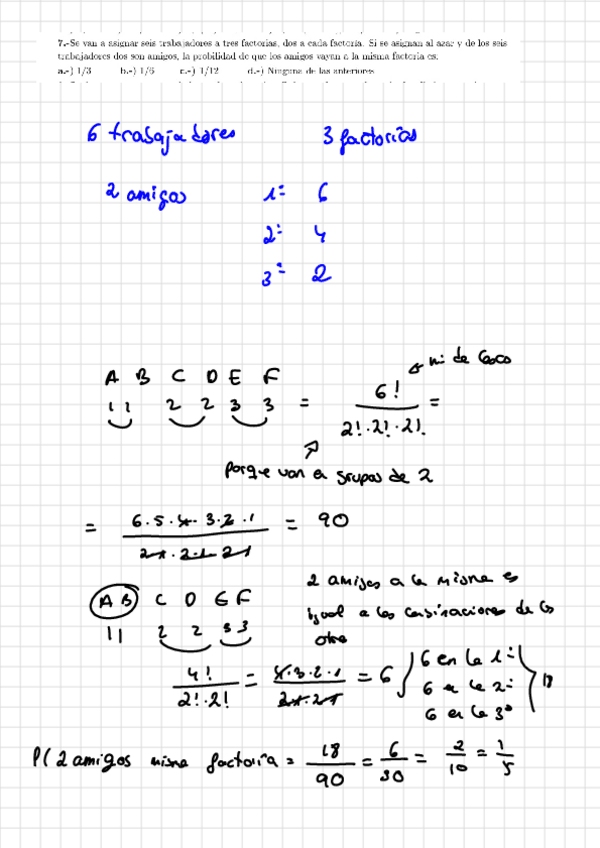 7.-Se van a asignar seis trabajadores a tres factorias, dos a cada factoria. Si se asignan al azar y de los seis
trabajadores dos son amigos, la probilidad de que los amigos vayan a la misma factoria es:
a.-) 1/3 b.-) 1/6 c.-) 1/12 d.-) Ninguna de las anteriores
6 trabajadores 3 factorias
2 amigos 1ª 6
2ª 4
3ª 2
A B C D E F
1 1 2 2 3 3 = 6! / 2!·2!·2! =
porque van a grupos de 2
= 6·5·4·3·2·1 / 2·1·2·1·2·1 = 90
A B C D E F
1 1 2 2 3 3
2 amigos a la misma es
igual a las combinaciones de los
otro
4! / 2!·2! = 4·3·2·1 / 2·1·2·1 = 6 { 6 en la 1ª
6 en la 2ª } 18
6 en la 3ª
P(2 amigos misma factoria = 18/90 = 6/30 = 2/10 = 1/5